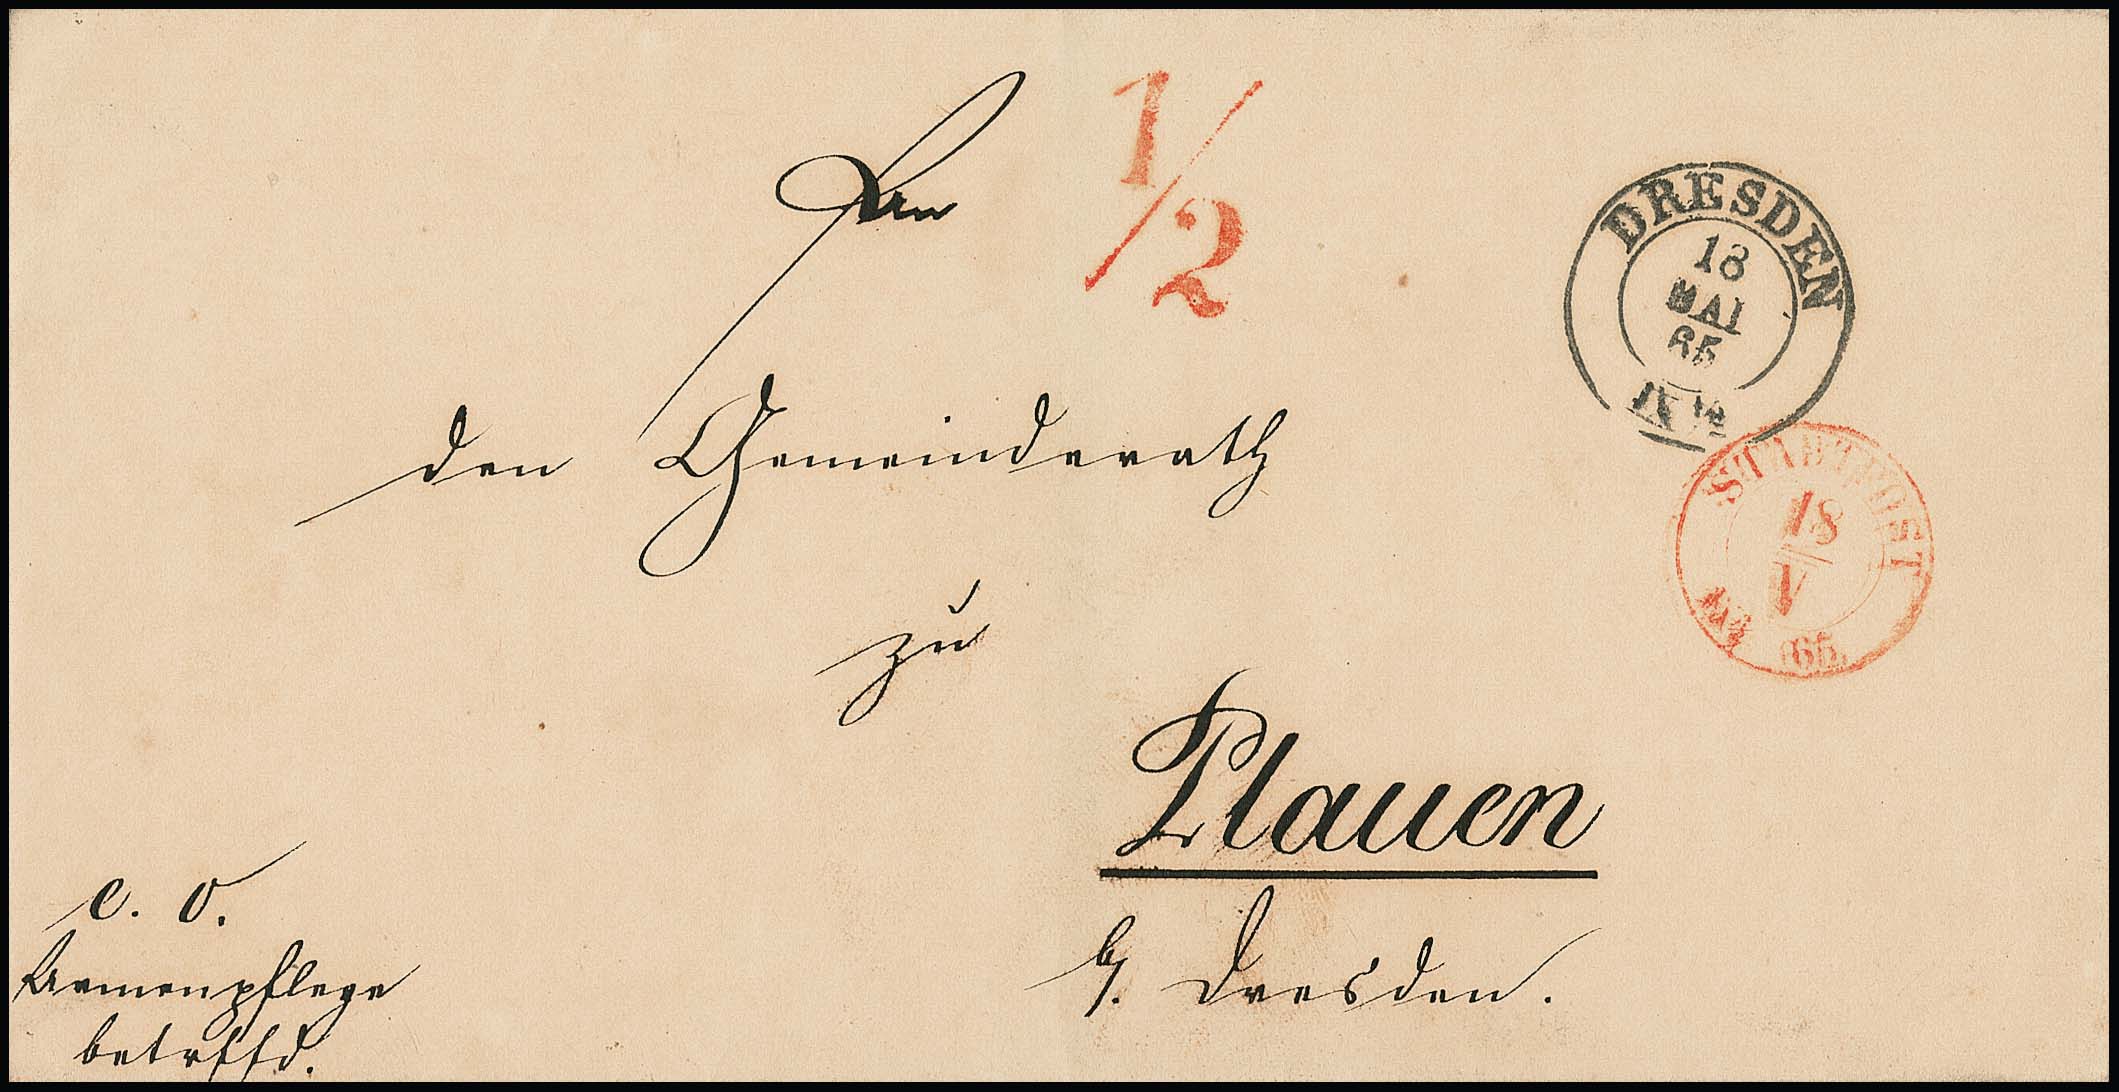 An
1/2
DRESDEN
18
MAI
65
IX ½
den Gemeinderath
STADTPOST
18
V
65.
zu
Plauen
b/. Dresden.
c. o.
Armenpflege
betrffd.